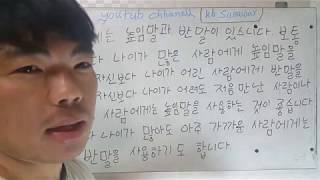 youtub channel kb Sunuwar
에는 높임말과 반말이 있습니다. 보통
다 나이가 많은 사람에게 높임말을
자신보다 나이가 어린 사람에게 반말을
자신보다 나이가 어려도 처음 만난 사람이나
사람에게는 높임말을 사용하는 것이 좋습니다
나이가 많아도 아주 가까운 사람에게는
반말을 사용하기도 합니다.